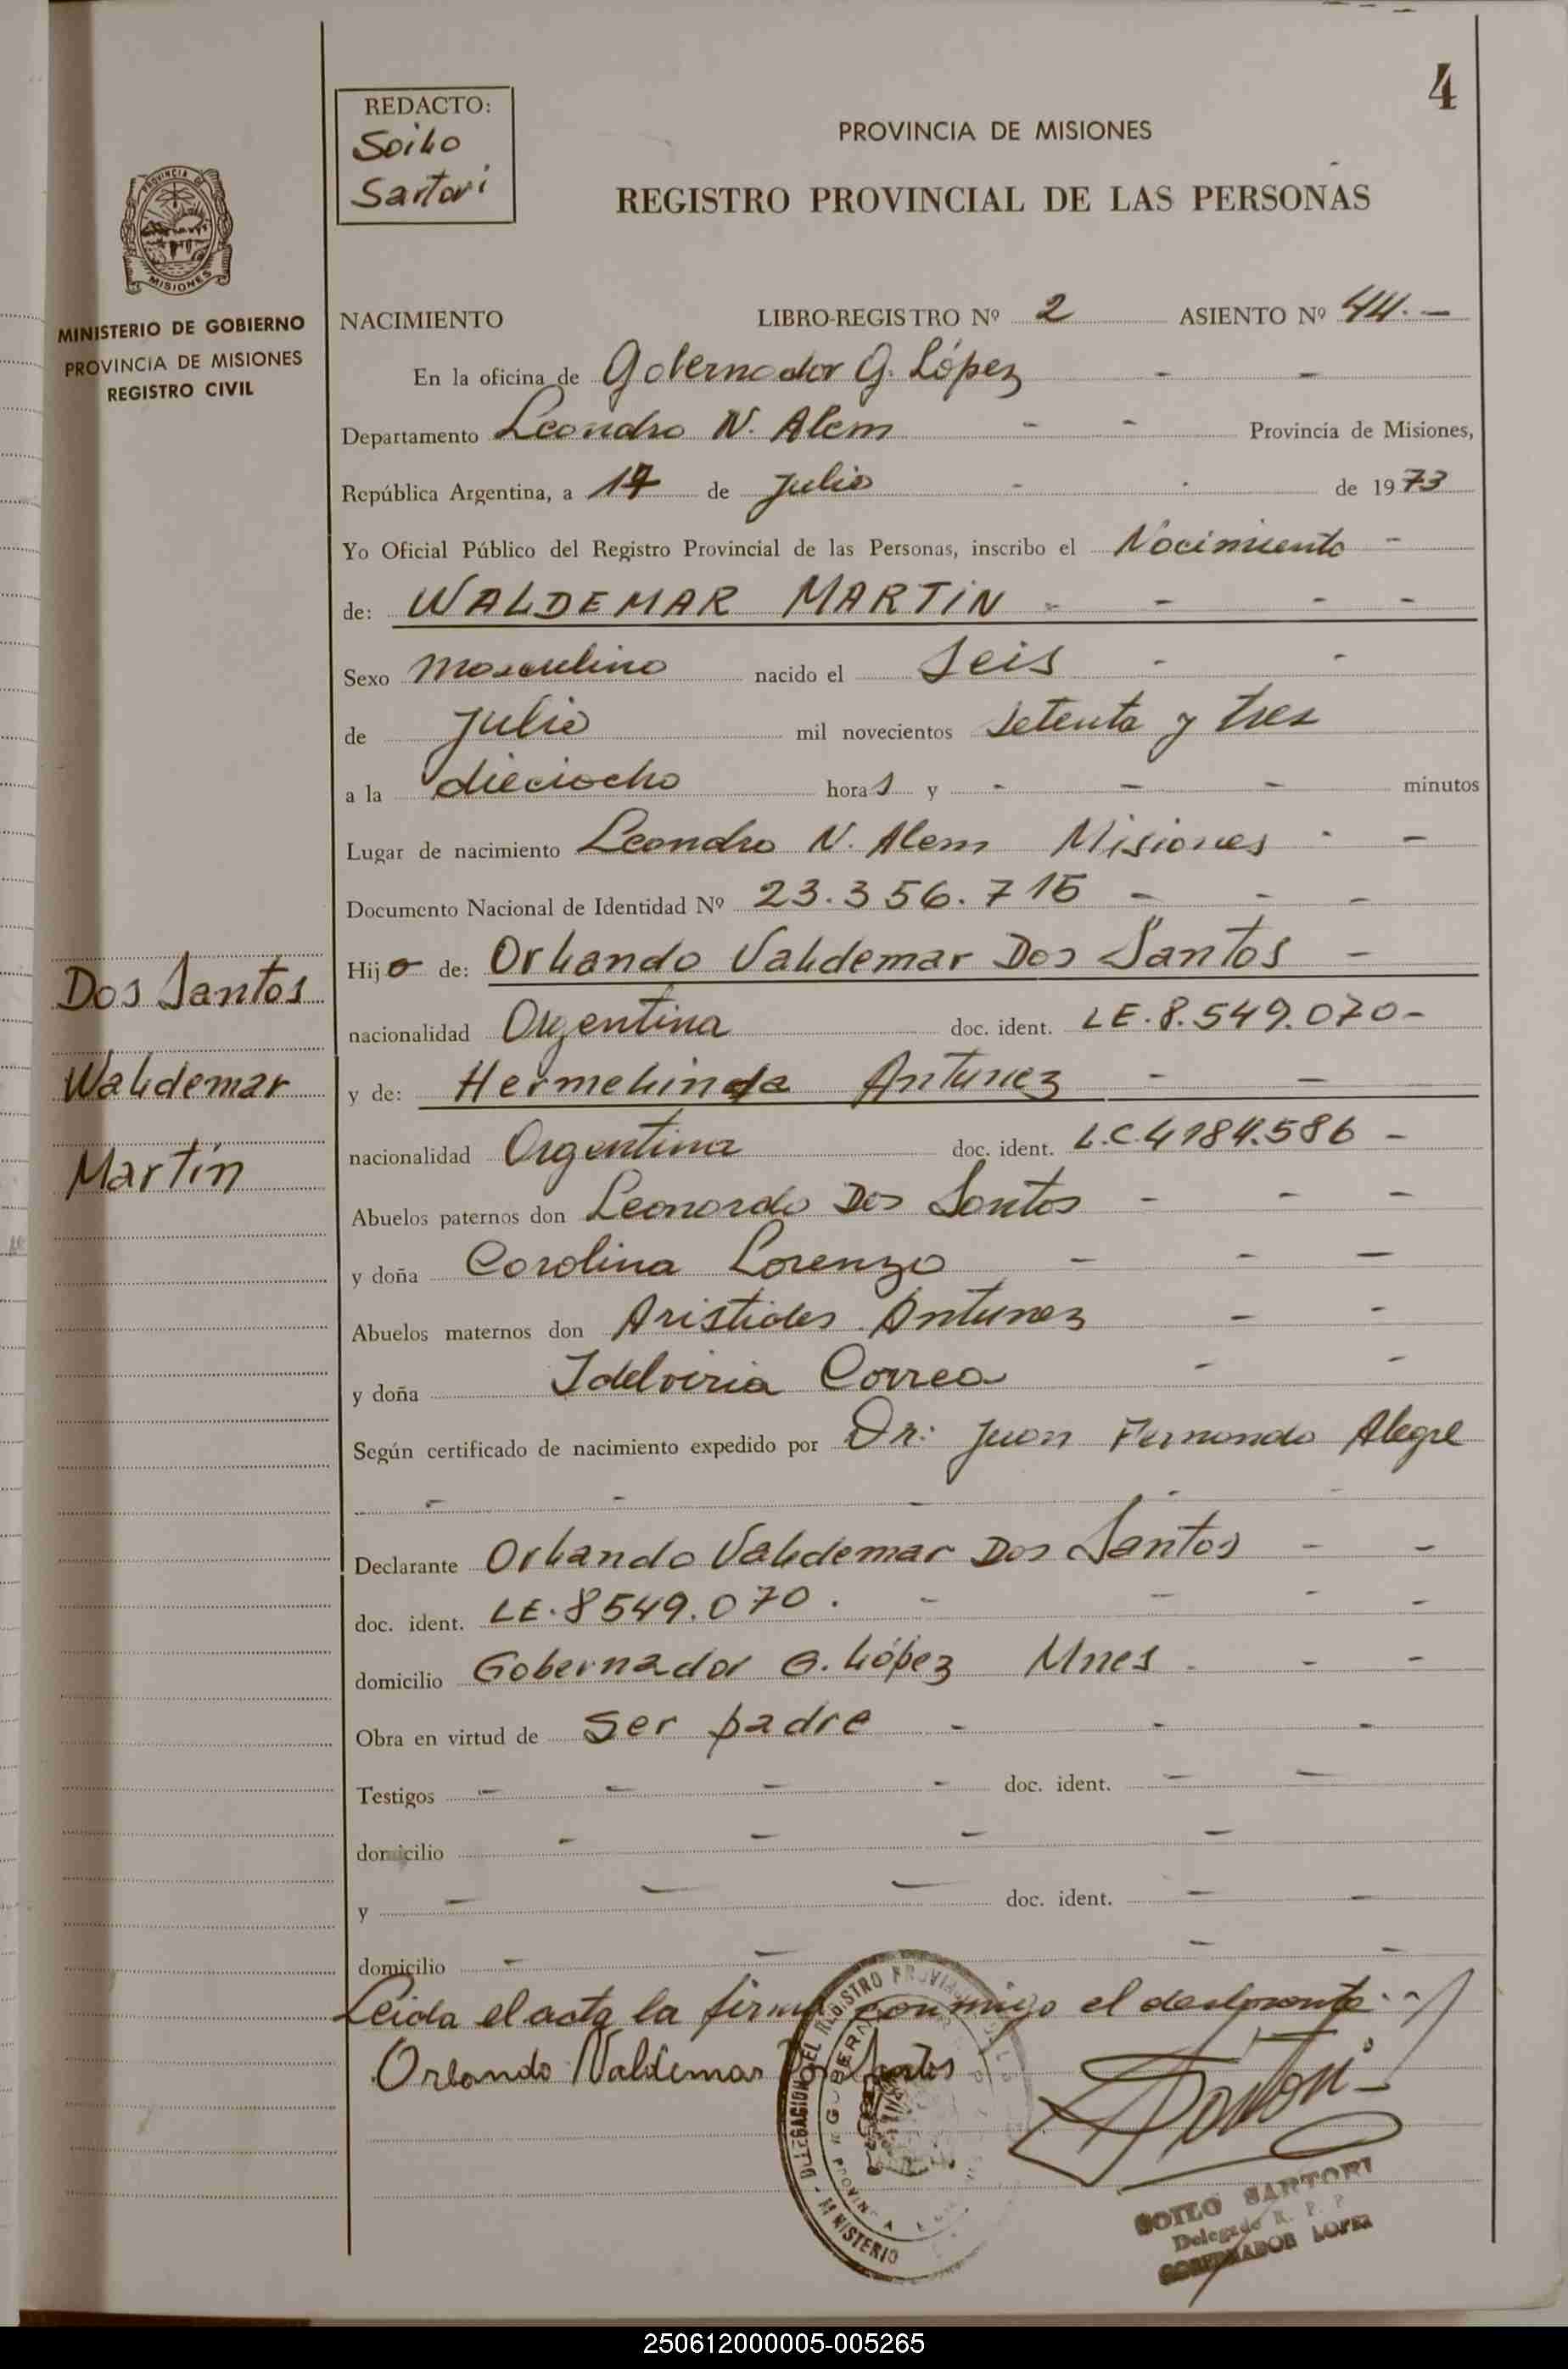 4
REDACTO:
Soilo
Sartori
PROVINCIA DE MISIONES
REGISTRO PROVINCIAL DE LAS PERSONAS
PROVINCIA DE
MISIONES
MINISTERIO DE GOBIERNO
PROVINCIA DE MISIONES
REGISTRO CIVIL
NACIMIENTO LIBRO-REGISTRO Nº 2 ASIENTO Nº 44.-
En la oficina de Gobernador G. López - -
Departamento Leandro N. Alem - - Provincia de Misiones,
República Argentina, a 17 de Julio - - de 1973
Yo Oficial Público del Registro Provincial de las Personas, inscribo el Nacimiento -
de: WALDEMAR MARTIN - - - -
Sexo Masculino nacido el Seis - -
de Julio mil novecientos setenta y tres
a la dieciocho horas y - - - minutos
Lugar de nacimiento Leandro N. Alem Misiones - -
Documento Nacional de Identidad Nº 23.356.715 - - -
Hijo de: Orlando Valdemar Dos Santos -
nacionalidad Argentina doc. ident. LE.8.549.070-
y de: Hermelinda Antunez - -
nacionalidad Argentina doc. ident. L.C.4184.586 -
Abuelos paternos don Leonardo Dos Santos - - -
y doña Carolina Lorenzo - - -
Abuelos maternos don Aristides Antunez - -
y doña Idelviria Correa - -
Según certificado de nacimiento expedido por Dr: Juan Fernando Alegre
- - - - -
Declarante Orlando Valdemar Dos Santos - -
doc. ident. LE.8549.070. - - - -
domicilio Gobernador G. López Mnes - - -
Obra en virtud de ser padre - - -
Testigos - - - - doc. ident. - -
domicilio - - - -
y - - - doc. ident. - -
domicilio - - - -
Leida el acta la firma conmigo el declarante--
Orlando Valdemar Dos Santos
Sartori
DELEGACION DEL REGISTRO
MINISTERIO
SOILO SARTORI
Delegado R. P. P.
GOBERNADOR LOPEZ
Dos Santos
Waldemar
Martín
250612000005-005265